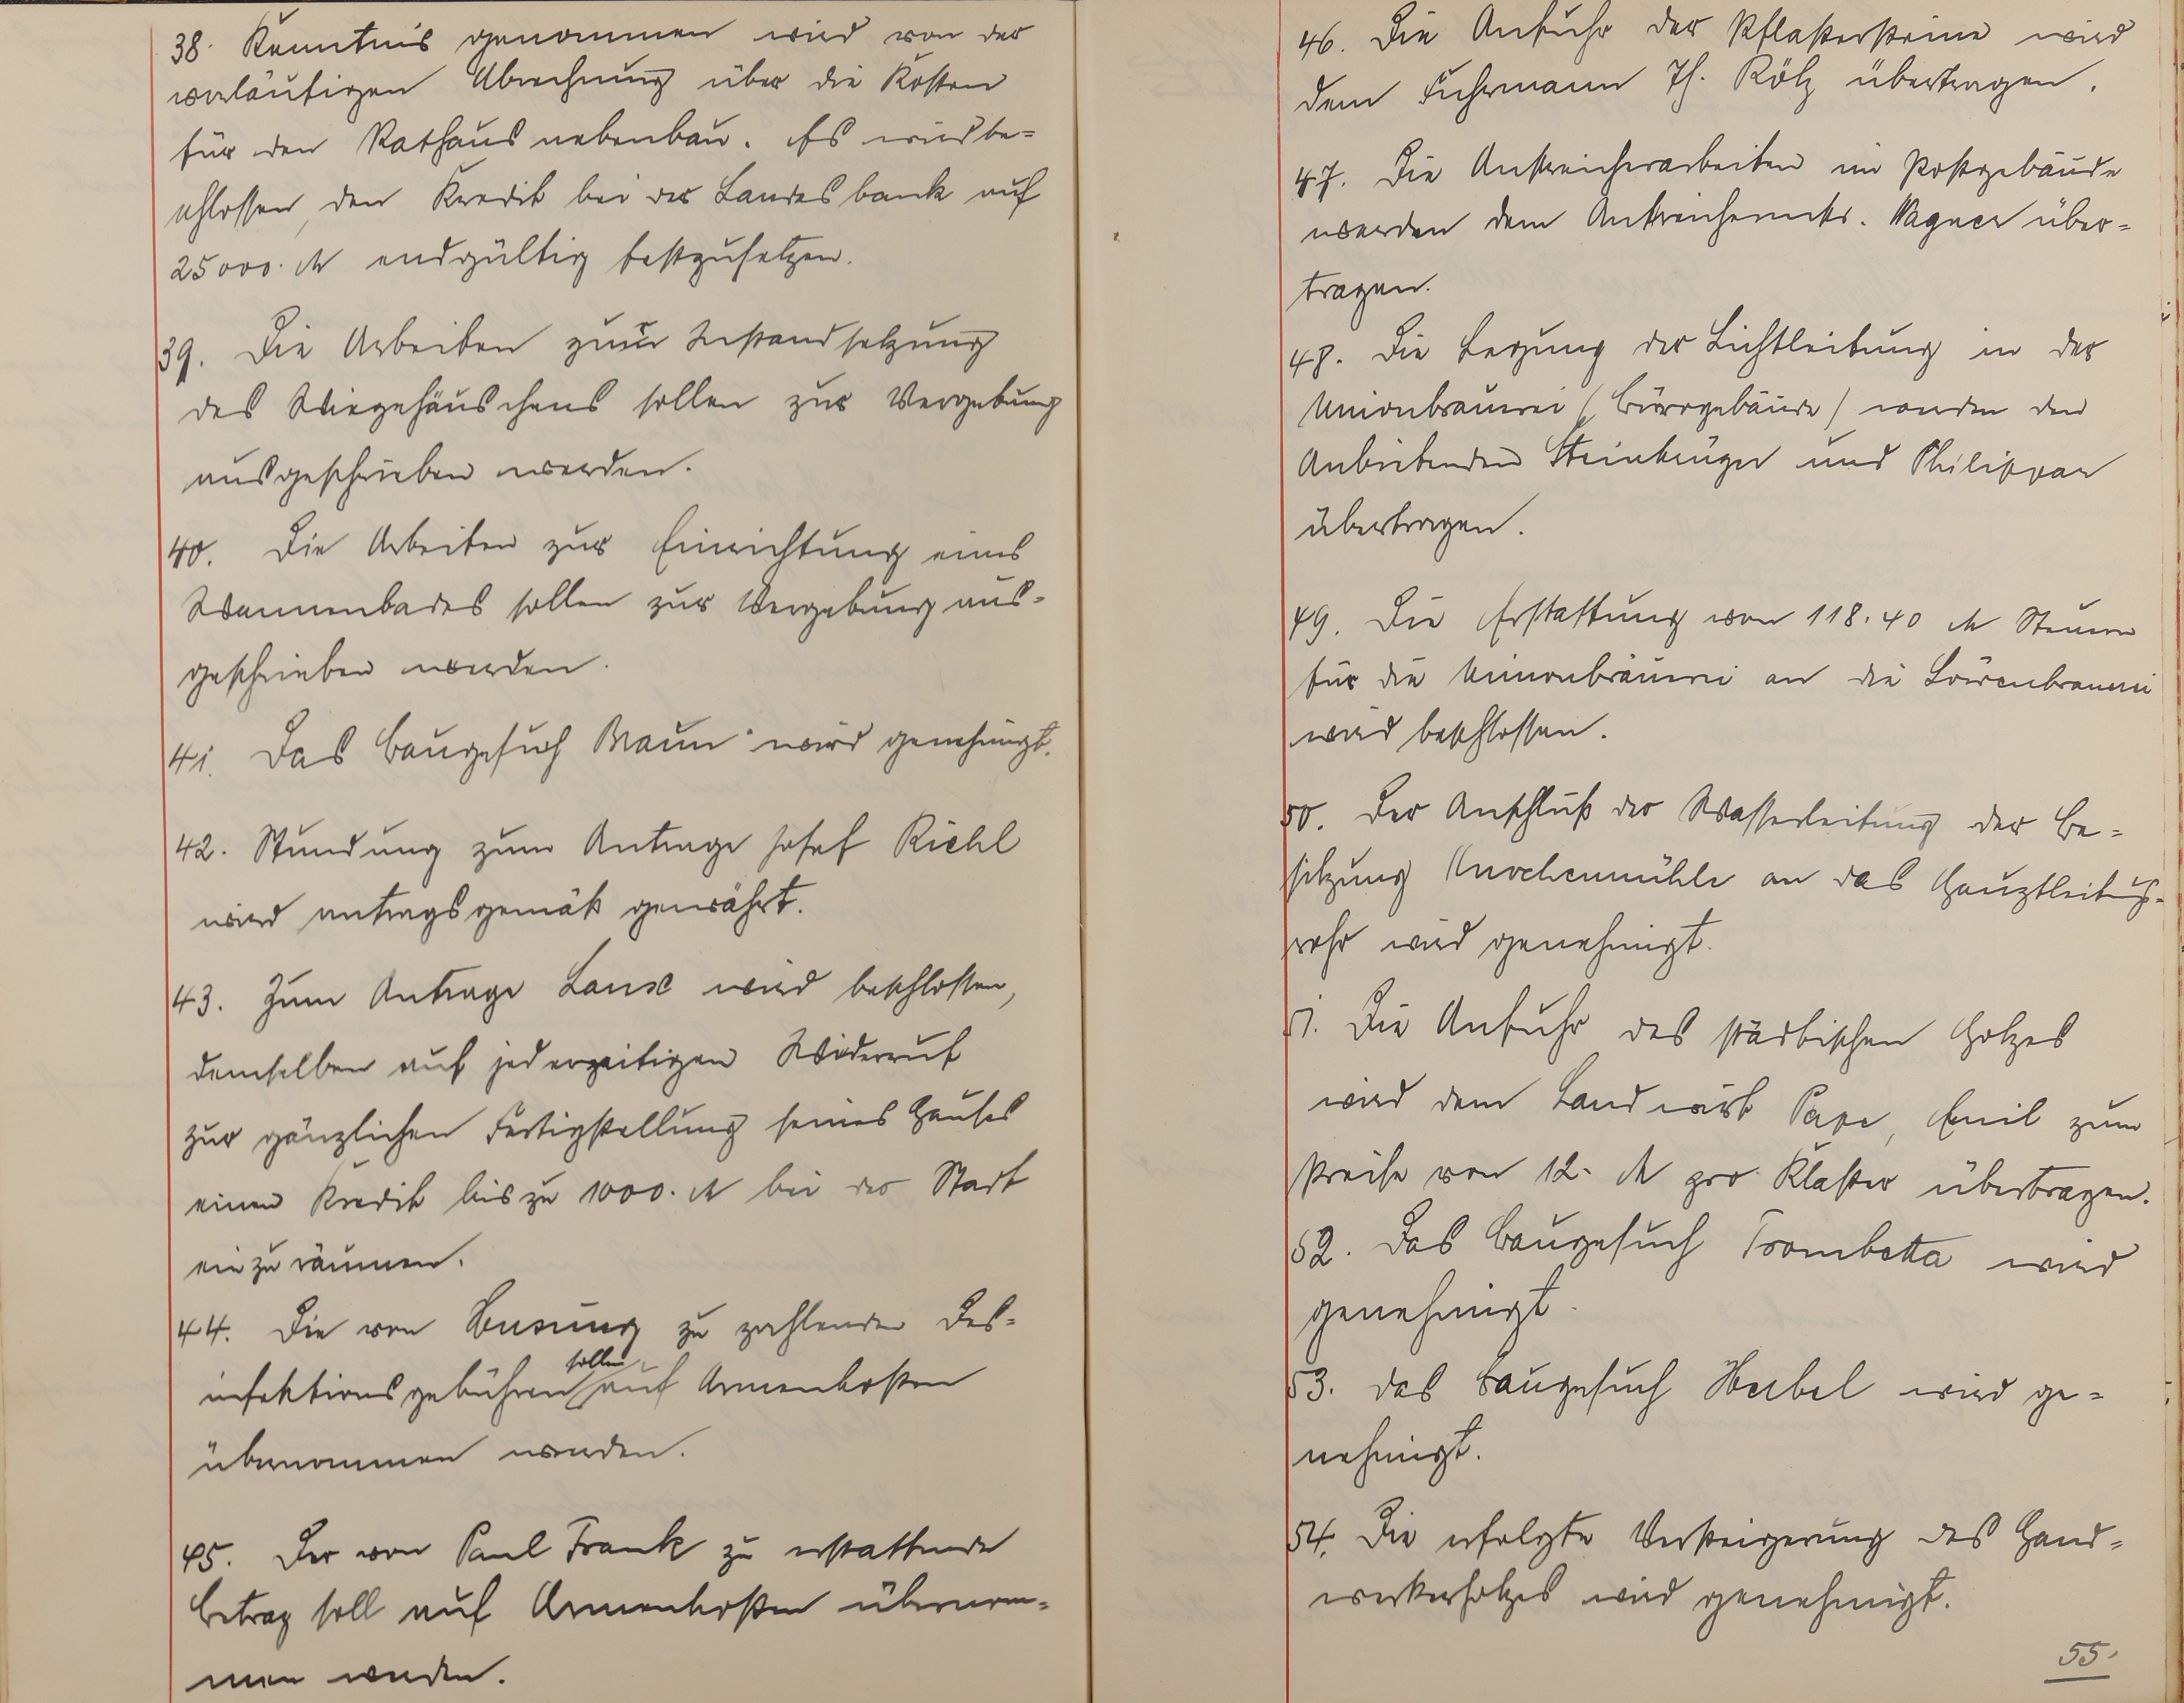 38. Kenntnis genommen wird von der
vorläufigen Abrechnung über die Kosten
für den Rathausnebenbau. Es wird be-
schlossen, den Kredit bei der Landesbank auf
25000. M endgültig festzusetzen.
39. Die Arbeiten zur Instandsetzung
des Wiegehäuschens sollen zur Vergebung
ausgeschrieben werden.
40. Die Arbeiten zur Einrichtung eines
Wannenbades sollen zur Vergebung aus-
geschrieben werden.
41. Das Baugesuch Braun wird genehmigt.
42. Stundung zum Antrage Josef Riehl
wird antragsgemäß gewährt.
43. Zum Antrage Laux wird beschlossen,
demselben auf jederzeitigen Widerruf
zur gänzlichen Fertigstellung seines Hauses
einen Kredit bis zu 1000. M bei der Stadt
einzuräumen.
44. Die von Busung zu zahlenden Des-
infektionsgebühren sollen auf Armenkosten
übernommen werden.
45. Der von Paul Frank zu erstattende
Betrag soll auf Armenkosten übernom-
men werden.
46. Die Anfuhr der Pflastersteine wird
dem Fuhrmann Th. Kölz übertragen.
47. Die Anstreicherarbeiten im Postgebäude
werden dem Anstreichermstr. Wagner über-
tragen.
48. Die Legung der Lichtleitung in der
Unionbrauerei (Bürogebäude) werden den
Anbietenden Steinbrüger und Philippar
übertragen.
49. Die Erstattung von 118.40 M Steuern
für die Unionbrauerei an die Löwenbrauerei
wird beschlossen.
50. Der Anschluß der Wasserleitung der Be-
sitzung Knochenmühle an das Hauptleitungs-
rohr wird genehmigt.
51. Die Anfuhr des städtischen Holzes
wird dem Landwirt Pape, Emil zum
Preise von 12.- M pro Klafter übertragen.
52. Das Baugesuch Trombetta wird
genehmigt.
53. Das Baugesuch Herbel wird ge-
nehmigt.
54. Die erfolgte Versteigerung des Hand-
werkerholzes wird genehmigt.
55.